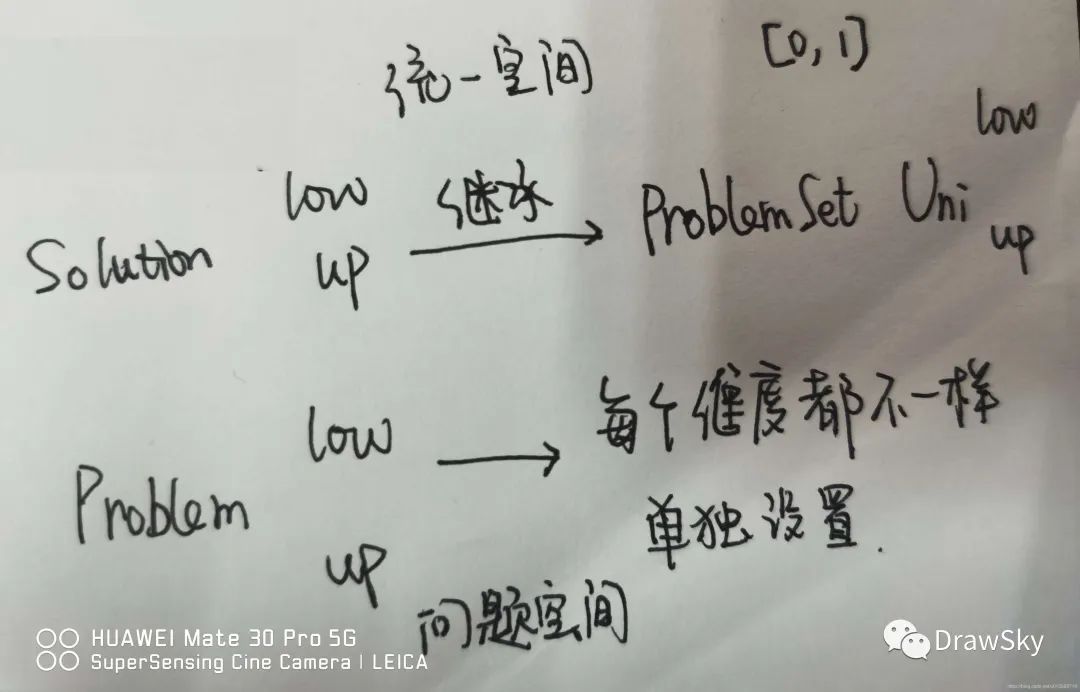 统一空间
[0,1]
low
low
继承
ProblemSet Uni
Solution
up
up
low
每个维度都不一样
Problem
单独设置.
up
问题空间
HUAWEI Mate 30 Pro 5G
SuperSensing Cine Camera | LEICA
DrawSky